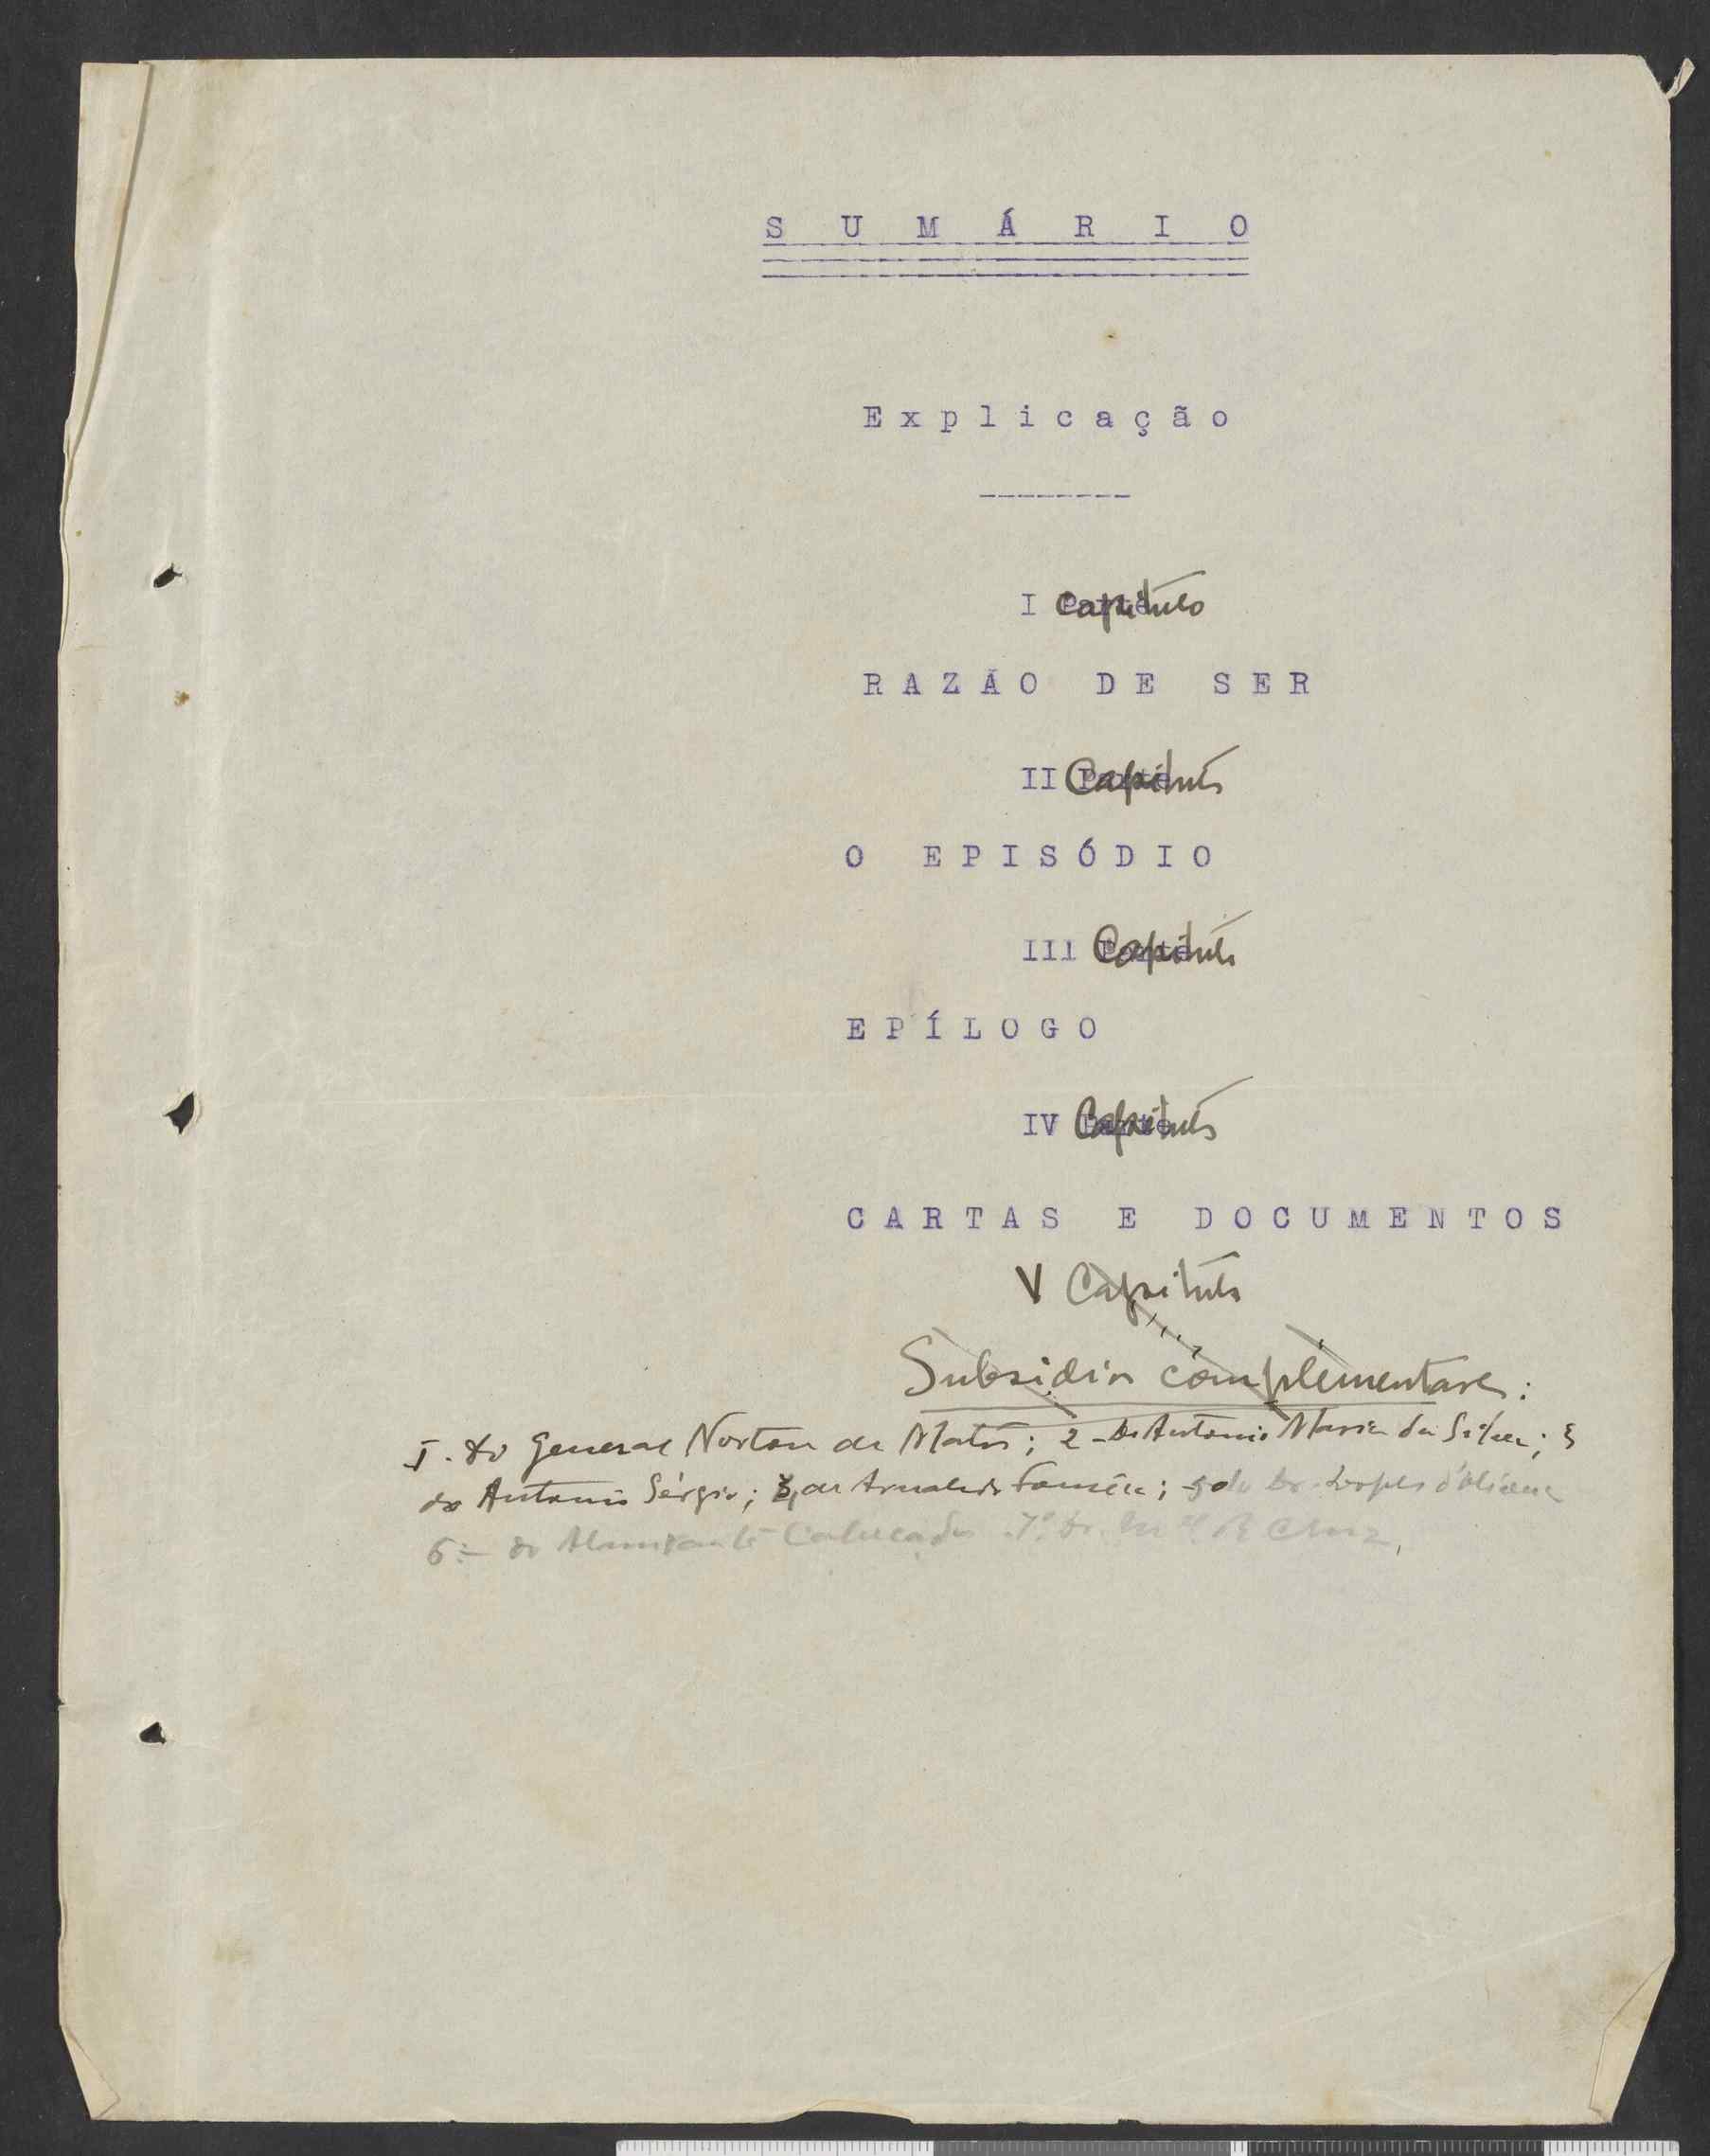 SUMÁRIO
Explicação
I Capítulo
RAZÃO DE SER
II Capítulo
O EPISÓDIO
III Capítulo
EPÍLOGO
IV Capítulo
CARTAS E DOCUMENTOS
V Capítulo
Subsidios complementares:
I. do General Norton de Matos; 2 - De Antonio Maria da Silva; 3
de Antonio Sérgio; 4, de Arnaldo; 5 do Dr. Lopes d'Oliveira
6 :- do Almirante Cabeçadas 7º Dr. Cruz,